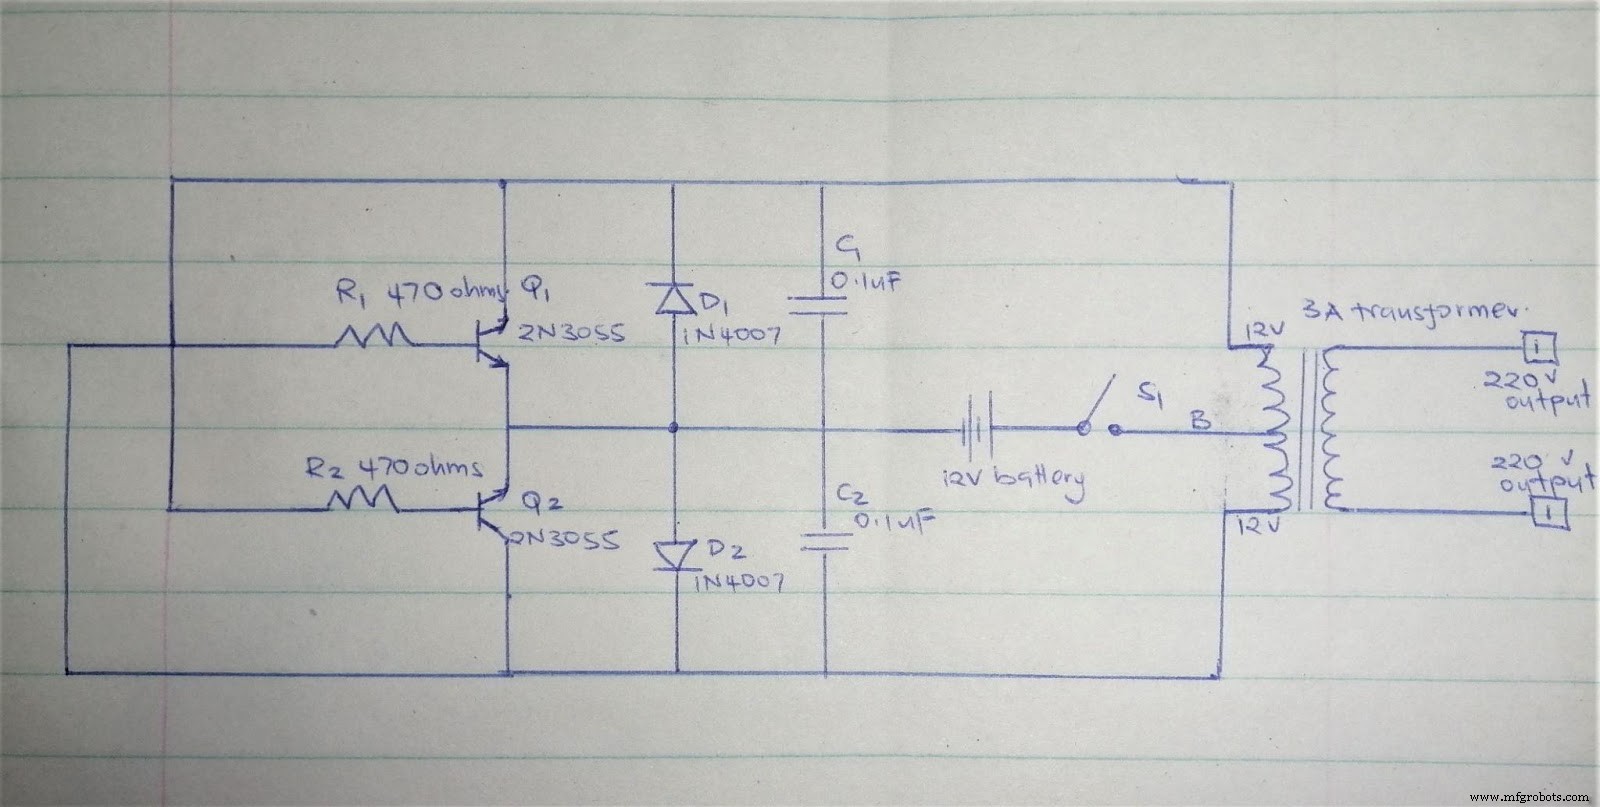 R1 470 ohms
Q1
2N3055
D1
1N4007
C1
0.1uF
3A transformer.
12V
220 v
output
S1
B
12V battery
R2 470 ohms
Q2
2N3055
C2
0.1uF
D2
1N4007
12V
220 v
output
www.mfgrobots.com